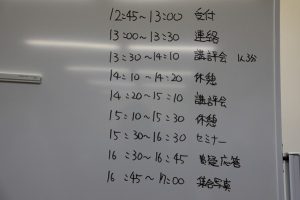 12:45~13:00 受付
13:00~13:30 連絡
13:30~14:10 講評会 1人3分
14:10~14:20 休憩
14:20~15:10 講評会
15:10~15:30 休憩
15:30~16:30 セミナー
16:30~16:45 質疑応答
16:45~17:00 集合写真